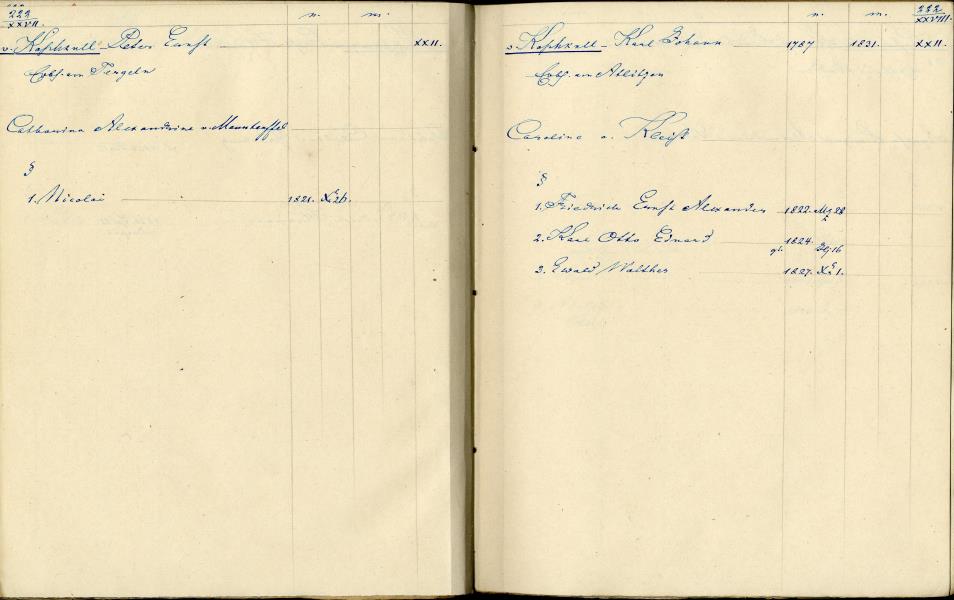 222
XXVII.
n. m.
v. Koschkull Peter Ernst XXII.
Erbh. von Tergeln
Catharina Alexandrine v. Manteuffel
§
1. Nicolai 1821.
222
XXVIII.
n. m.
v. Koschkull Karl Johann 1787 1831. XXII.
Erbh. von
Caroline v. Kleist
§
1. Friedrich Ernst Alexander 1822. 28
2. Karl Otto Eduard 1824. 16
3. Ewald Walther 1827. 1.